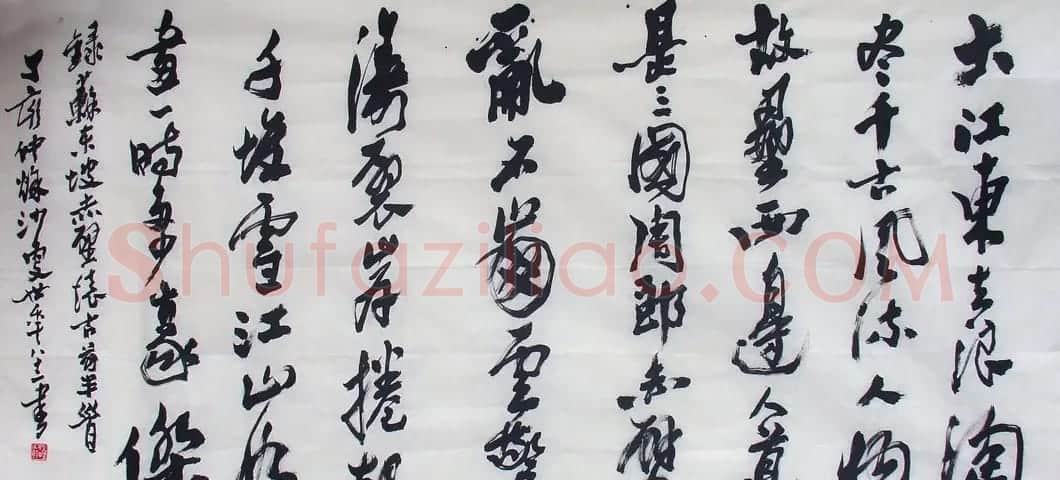 大江东去浪淘
尽千古风流人物
故垒西邊人道
是三國周郎赤壁
亂石崩雲驚
濤裂岸捲起
千堆雪江山如
畫一時多少豪傑
錄蘇东坡赤壁懷古
丁亥仲秋沙曼
Shufaziliao.COM